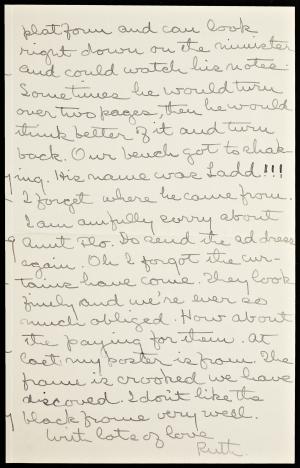 platform and can look
right down on the minister
and could watch his notes.
Sometimes he would turn
over two pages, then he would
think better of it and turn
back. Our bench got to shak
ing. His name was Ladd!!!
I forget where he came from.
I am awfully sorry about
Aunt Flo. Do send the address
again. Oh I forgot the cur-
tains have come. They look
finely and we're ever so
much obliged. How about
the paying for them. At
last my poster is from. The
frame is crooked we have
discoved. I don't like the
black frame very well.
With lots of love
Ruth.